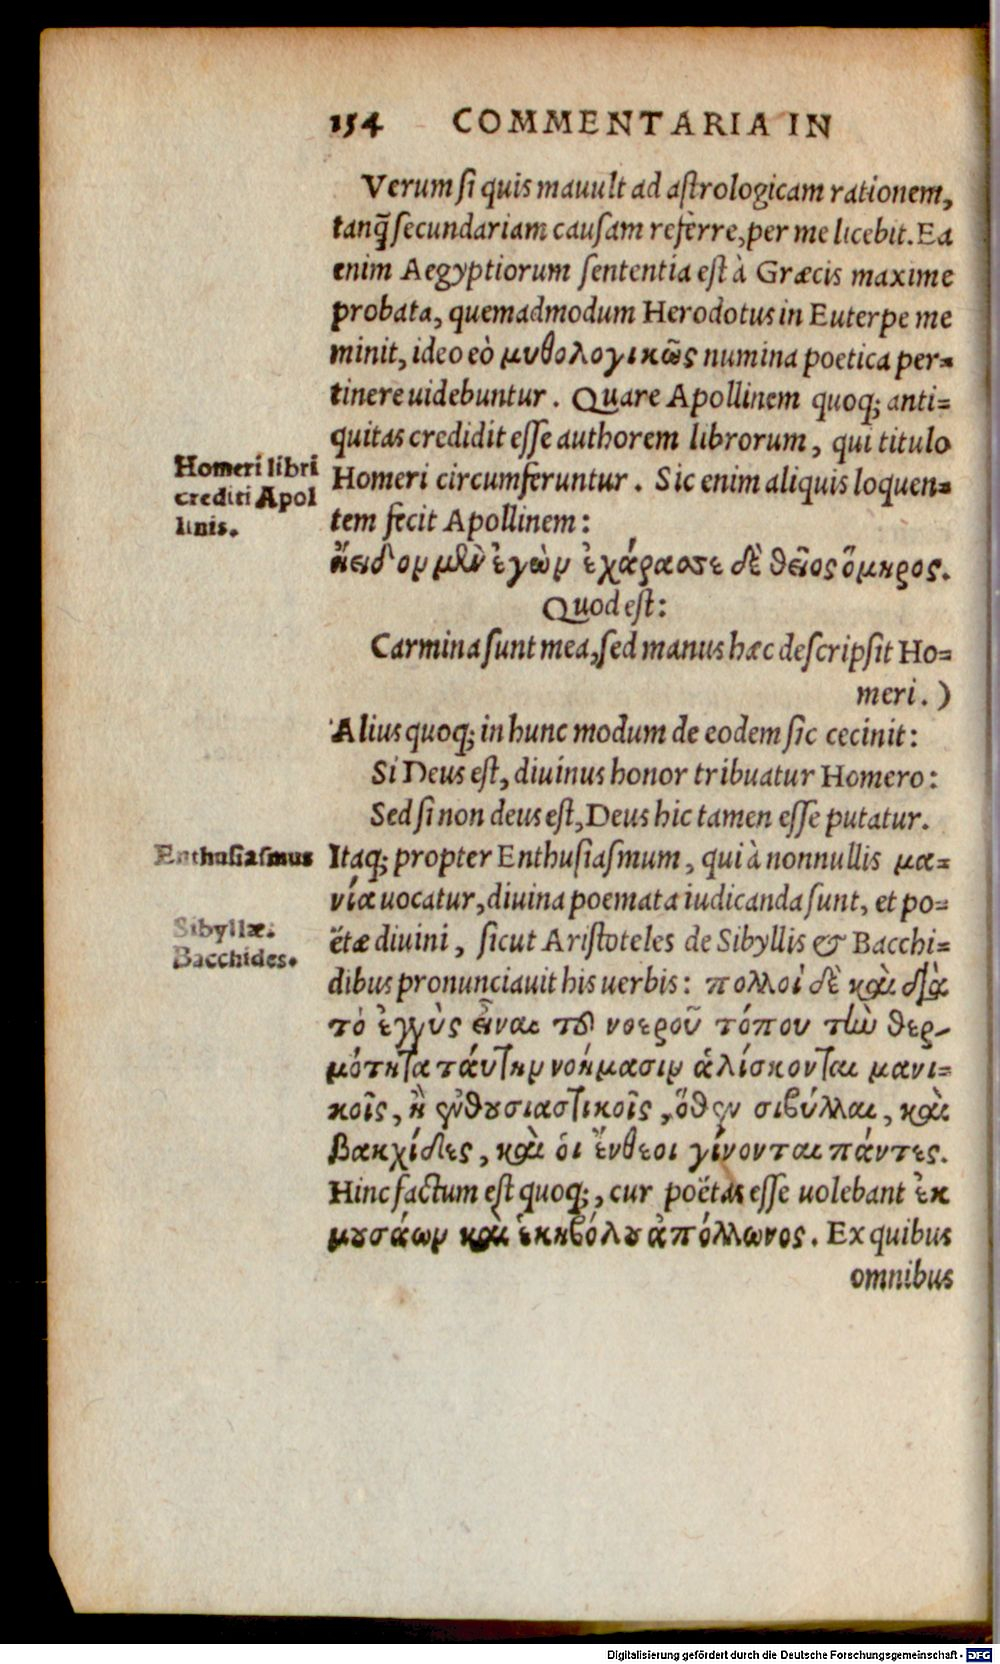 154 COMMENTARIA IN
Verum si quis mauult ad astrologicam rationem,
tanq̃ secundariam causam referre, per me licebit. Ea
enim Aegyptiorum sententia est à Græcis maxime
probata, quemadmodum Herodotus in Euterpe me
minit, ideo eò μυθολογικῶς numina poetica per=
tinere uidebuntur. Quare Apollinem quoq; anti=
quitas credidit esse authorem librorum, qui titulo
Homeri libri
crediti Apol
linis.
Homeri circumferuntur. Sic enim aliquis loquen=
tem fecit Apollinem:
ἤειδον μὲν ἐγὼν ἐχάρασσε δὲ θεῖος ὅμηρος.
Quod est:
Carmina sunt mea, sed manus hæc descripsit Ho=
meri.)
Alius quoq; in hunc modum de eodem sic cecinit:
Si Deus est, diuinus honor tribuatur Homero:
Sed si non deus est, Deus hic tamen esse putatur.
Enthusiasmus
Itaq; propter Enthusiasmum, qui à nonnullis μα=
νία uocatur, diuina poemata iudicanda sunt, et po=
Sibyllæ.
Bacchides.
ëtæ diuini, sicut Aristoteles de Sibyllis & Bacchi=
dibus pronunciauit his uerbis: πολλοὶ δὲ καὶ διὰ
τὸ ἐγγὺς εἶναι τοῦ νοεροῦ τόπου τὴν θερ-
μότητα τάυτην νοήμασιν ἁλίσκονται μανι=
κοῖς, ἢ ἐνθουσιαστικοῖς, ὅθεν σιβύλλαι, καὶ
βακχίδες, καὶ ὁι ἔνθεοι γίνονται πάντες.
Hinc factum est quoq;, cur poëtas esse uolebant ἐκ
μουσάων καὶ ἑκηβόλου ἀπόλλωνος. Ex quibus
omnibus
Digitalisierung gefördert durch die Deutsche Forschungsgemeinschaft - DFG